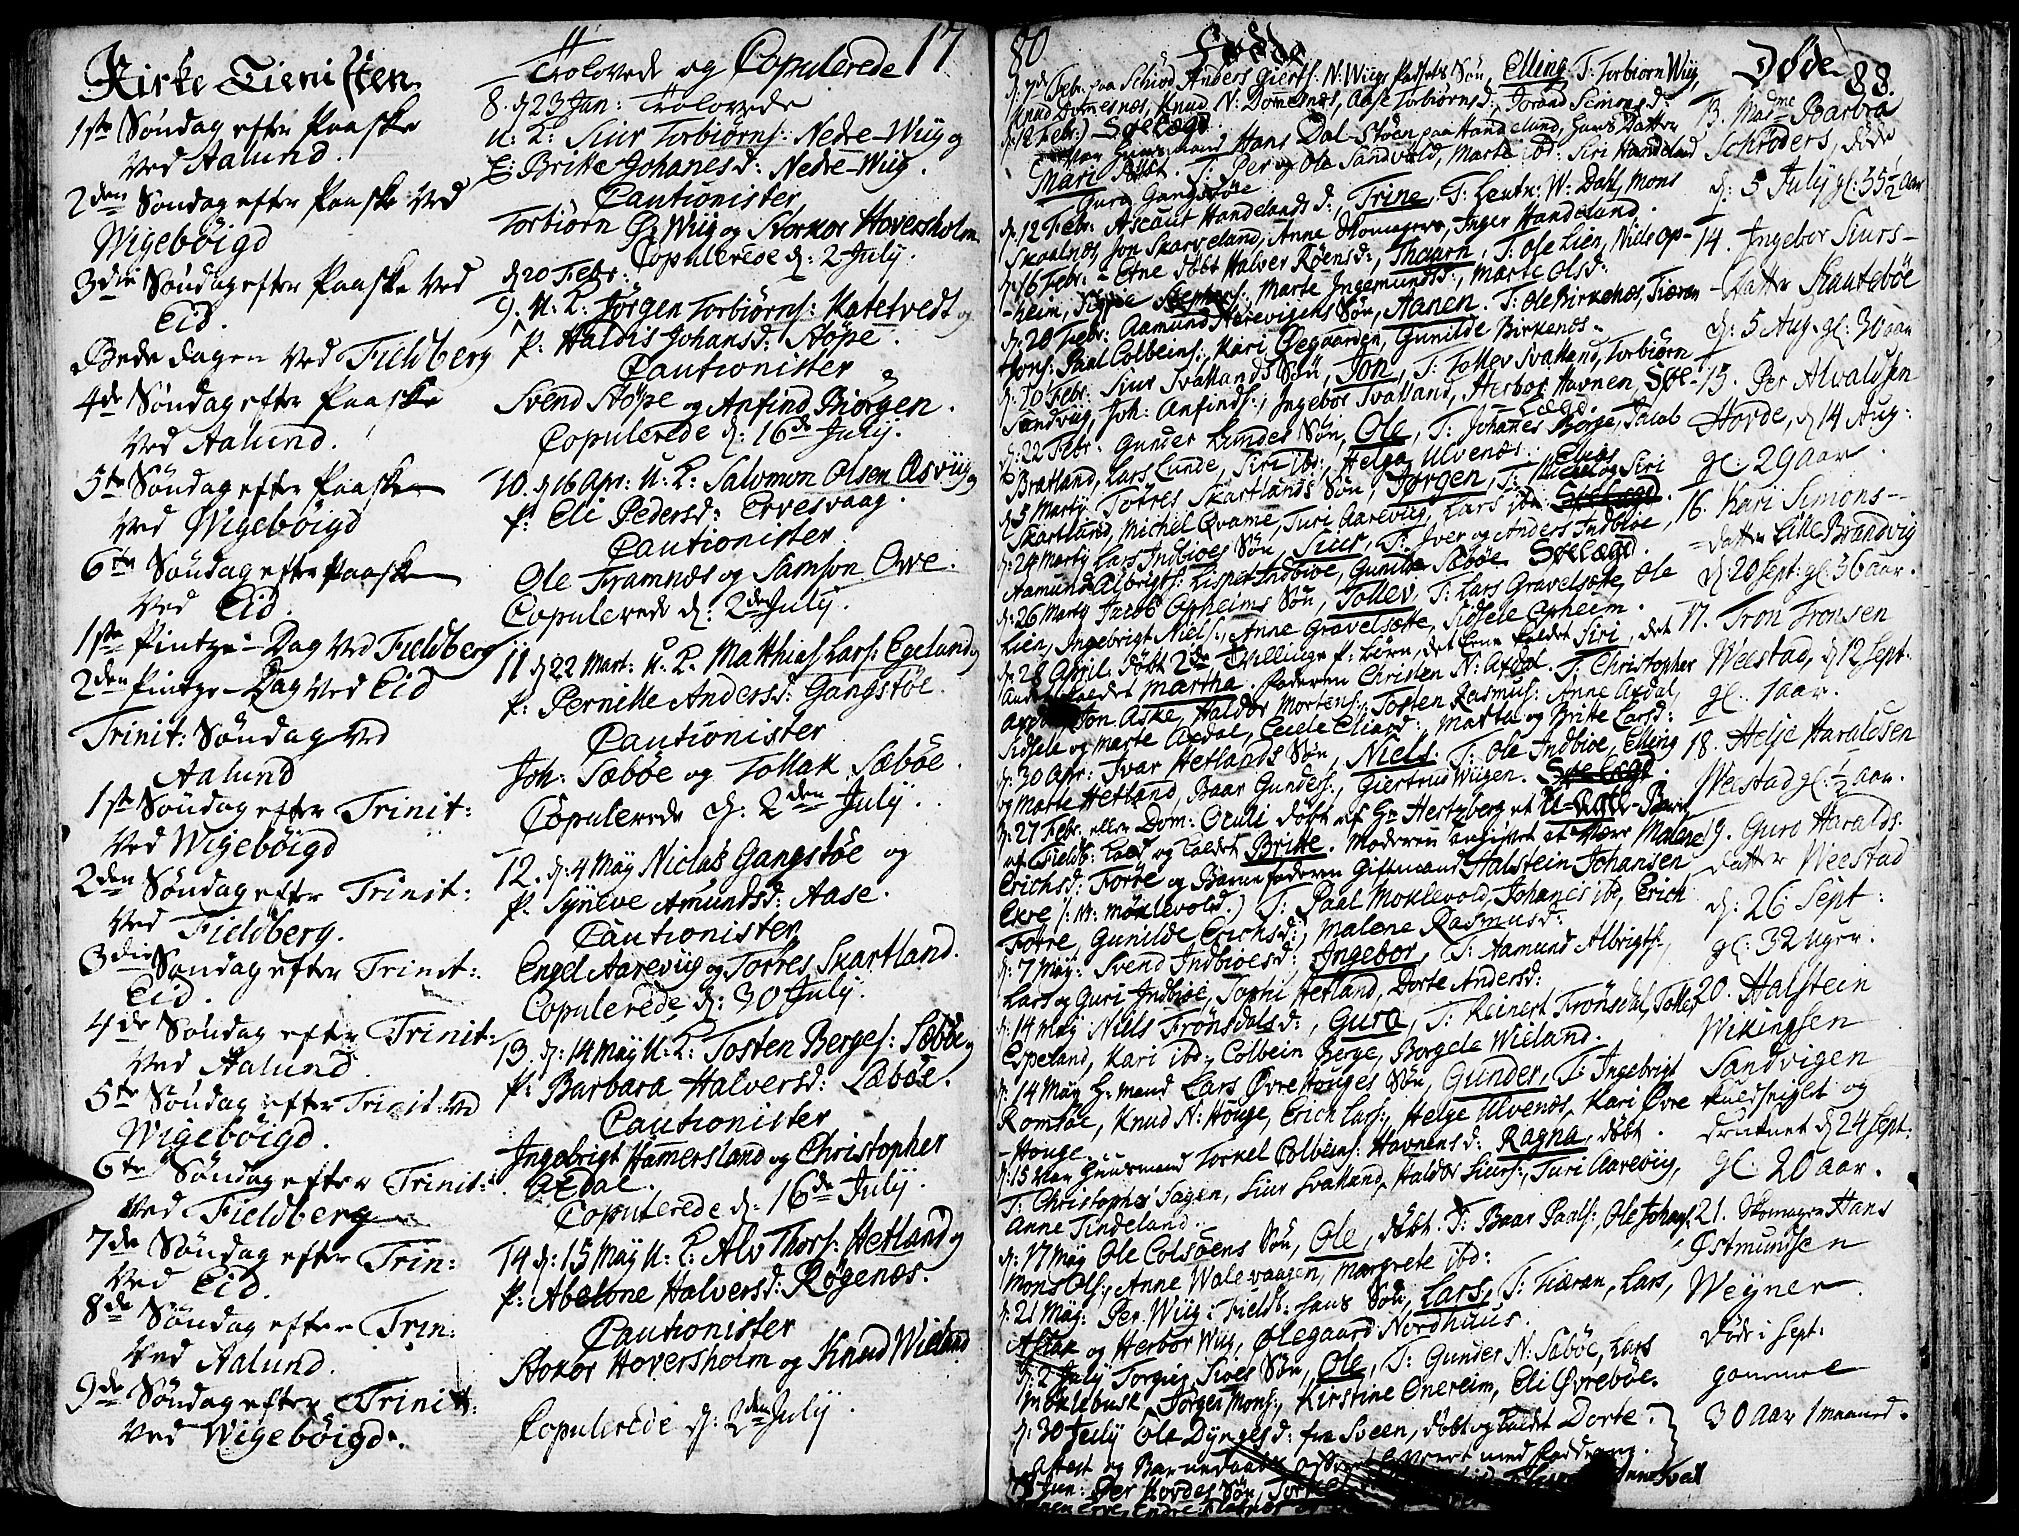 Kirke Tienisten.
1ste Søndag efter Paaske
Ved Aalund.
2den Søndag efter Paaske Ved
Wigebøigd
3die Søndag efter Paaske Ved
Eid.
Bede dagen Ved Fieldberg
4de Søndag efter Paaske
Ved Aalund.
5te Søndag efter Paaske
Ved Wigebøigd
6te Søndag efter Paaske
Ved Eid.
1ste Pintze-Dag Ved Fieldberg
2den Pintze-Dag Ved Eid
Trinit: Søndag Ved
Aalund
1ste Søndag efter Trinit:
Ved Wigebøigd
2den Søndag efter Trinit:
Ved Fieldberg.
3die Søndag efter Trinit:
Eid.
4de Søndag efter Trinit:
Ved Aalund.
5te Søndag efter Trinit: Ved
Wigebøigd.
6te Søndag efter Trinit:
Ved Fieldberg
7de Søndag efter Trin:
Ved Eid.
8de Søndag efter Trin:
Ved Aalund.
9de Søndag efter Trinit:
Ved Wigebøigd.
Trolovede og Copulerede 17
8. d 23 Jan: Trolovede
U: K: Siur Torbiørns: Nedre-Wiig og
P: Britte Johanesd: Nedre-Wiig.
Cautionister
Torbiørn Ø: Wiig og Storkor Hoversholm
Copulerede d: 2 July.
d 20 Febr:
9. U: K: Jørgen Torbiørns: Katetvedt og
P: Haldis Johansd: Støpe.
Cautionister
Svend Støpe og Anfind Biørgen.
Copulerede d: 16de July.
10. d 16 Apr: U: K: Salomon Olsen Osviig og
P: Eli Pedersd: Ervesvaag.
Cautionister
Ole Framnæs og Samson Ovre.
Copulerede d: 2den July.
11 d 22 Mart: U: K. Matthias Lars: Egeland og
P: Pernille Andersd: Gangstøe.
Cautionister
Joh: Sæbøe og Tollak Sæbøe.
Copulerede d: 2den July.
12. d: 4 May Niclas Gangstøe og
P. Syneve Amundsd: Aase.
Cautionister
Engel Aareviig og Torres Skartland.
Copulerede d: 30 July.
13. d: 14 May U: K: Tosten Berges: Sæbøe og
P: Barbara Halversd: Sæbøe.
Cautionister
Ingebrigt Hammersland og Christopher
Axdal.
Copulerede d: 16de July.
14 d: 15 May U: K: Alv Thors: Hetland og
P: Abelone Halversd: Røgenæs.
Cautionister
Storkor Hoversholm og Knud Wieland
Copulerede d: 2den July.
80 Fødde
d: 7de Febr. paa Schiold Anders Gierts: N: Wiigs Søn, Elling T: Torbiørn Wiig,
Knud Dommesnæs, Knud N: Dommesnæs, Aase Torbiørnsd:, Jorand Simonsd:
d: 12 Febr:) Spelægd
Huusmand Hans Dal-Støen paa Handeland, hans Datter
Mari døbt. T: Per og Ole Sandvold, Marte ibd: Siri Handeland
Gura Gangstøe
d: 12 Febr: Ascaut Handelands d:, Trine, T: Leutn: W: Dahl, Mons
Skaalnæs, Jon Skarveland, Anne, Inger Handeland.
d: 16 Febr: Etne døbt Halver Røensd:, Ingarn, T: Ole Lien, Niels Op-
heim, Marte Ingemundsd:, Marte Olsd:
d: 20 Febr: Aamund Herevigens Søn, Aanen. T: Ole Birkenæs, Fiæran
Jons: Paal Colbeins:, Kari Øegaarden, Gunilde Birkenæs.
d: 20 Febr: Siur Svatlands Søn, Jon, T: Tollev Svatland, Torbiørn
Sandvig, Joh: Anfinds:, Ingebor Svatland, Herbor Havnen, Spe-
lægd.
d: 22 Febr: Gunder Lundes Søn, Ole, T: Johanes Borge, Jacob
Bratland, Lars Lunde, Siri ibd:, Helga Ulvenæs.
d: 5 Marty Torres Skartlands Søn, Jørgen, T: Elias og Siri
Skartland, Michel Qvame, Turi Aareviig, Lars ibd: Spelægd.
d: 24 Marty Lars Indbioes Søn, Siur, T: Iver og Anders Indbioe,
Aamund Albrigts: Lispet Indbioe, Gunilde Sæbøe. Spelægd.
d: 26 Marty Jacob Opheims Søn, Tollev, T: Lars Gravelsæte, Ole
Lien, Ingebrigt Niels:, Anne Gravelsæte, Sidsele Opheim.
d: 28 April. døbt 2de Tvillinge P: børn, det Eene kaldet Siri, det
andet kaldet Martha. Faderen Christen N: Axdal. T: Christopher
Axdal Jon Aske, Haldor Mortens:, Tosten Rasmus: Anne Axdal,
Sidsele og Marte Axdal, Cecele Eliasd: Marta og Britte Larsd:
d: 30 Apr: Ivar Hetlands Søn, Niels, T: Ole Indbioe, Elling
og Marte Hetland, Baar Gunders:, Giertrud Wiigen. Spelægd.
d: 27 Febr: eller Dom: Oculi døbt af Hr Hertzberg et U-Ægte-Barn
af Fieldb: Sogn og kaldet Britte. Moderen angivet at være Malene
Erichsd: Førre og Barnefaderen Giftmand Halstein Johansen
Ecre (: N: Møklevold) T: Paal Moklevold, Johanes ibd, Erich
Førre, Gunilde Erichsd:, Malene Rasmusd:
d: 7 May: Svend Indbioesd: Ingebor, T: Aamund Albrigts:,
Lars og Guri Indbioe, Sophi Hetland, Dorte Andersd:
d: 14 May Niels Frønsdalsd:, Gura, T: Reinert Frønsdal, Tolles
Espeland, Kari ibd:, Colbein Berge, Borgele Wieland.
d: 14 May H: mand Lars Øvre Houges Søn, Gunder, T: Ingebrigt
Romsøe, Knud N: Houge, Erich Lars:, Helge Ulvenæs, Kari Øvre
Houge.
d: 15 May Huusmand Torkel Colbeins: Havnensd: Ragna, døbt.
T: Christopher Sagen, Siur Svatland, Haldor Siurs:, Turi Aareviig,
Anne Tindeland.
d: 17 May Ole Colsøens Søn, Ole, døbt. T: Baar Paals:, Ole Johans:
Mons Ols:, Anne Walevaagen, Margrete ibd:
d: 21 May: Per Wiig: Fieldb: hans Søn, Lars, T: Fiæran, Lars,
Aslak og Herbor Wiig, Ølegaard Nordhuus.
d: 2 July Torgiej Sioes Søn, Ole, T: Gunder N: Sæbøe, Lars
Møklebust, Jørgen Mons:, Kirstine Enereim, Eli Øvrebøe.
d: 30 July Ole Dyngesd: fra Sveen, døbt og kaldet Dorte.
attest og Barnedaaben
18 Jun: Per Hordes Søn, Torkel
Døde 88.
13. Madme Barbra
Schrøders, døde
d: 5 July gl: 55 1/2 Aar
14. Ingebor Siurs-
Datter Skautebøe
d: 5 Aug. gl: 30 aar
15. Per Alvaldsen
Horde, d 14 Aug:
gl: 29 aar.
16. Kari Simons-
datter Lille Brandvig
d 20 Sept: gl: 36 aar.
17. Tron Tronsen
Weestad, d 12 Sept.
gl: 1 aar.
18. Helje Haraldsen
Weestad gl: 1/2 aar.
19. Guro Haralds:
datter Weestad
d: 26 Sept:
gl: 32 Uger.
20. Halstein
Wikingsen
Sandvigen
kuldseiglt og
druknet d 24 Sept:
gl: 20 aar.
21. Skomager Hans
Østmundsen
Weyner.
døde i Sept:
gammel
30 Aar 1 maaned.